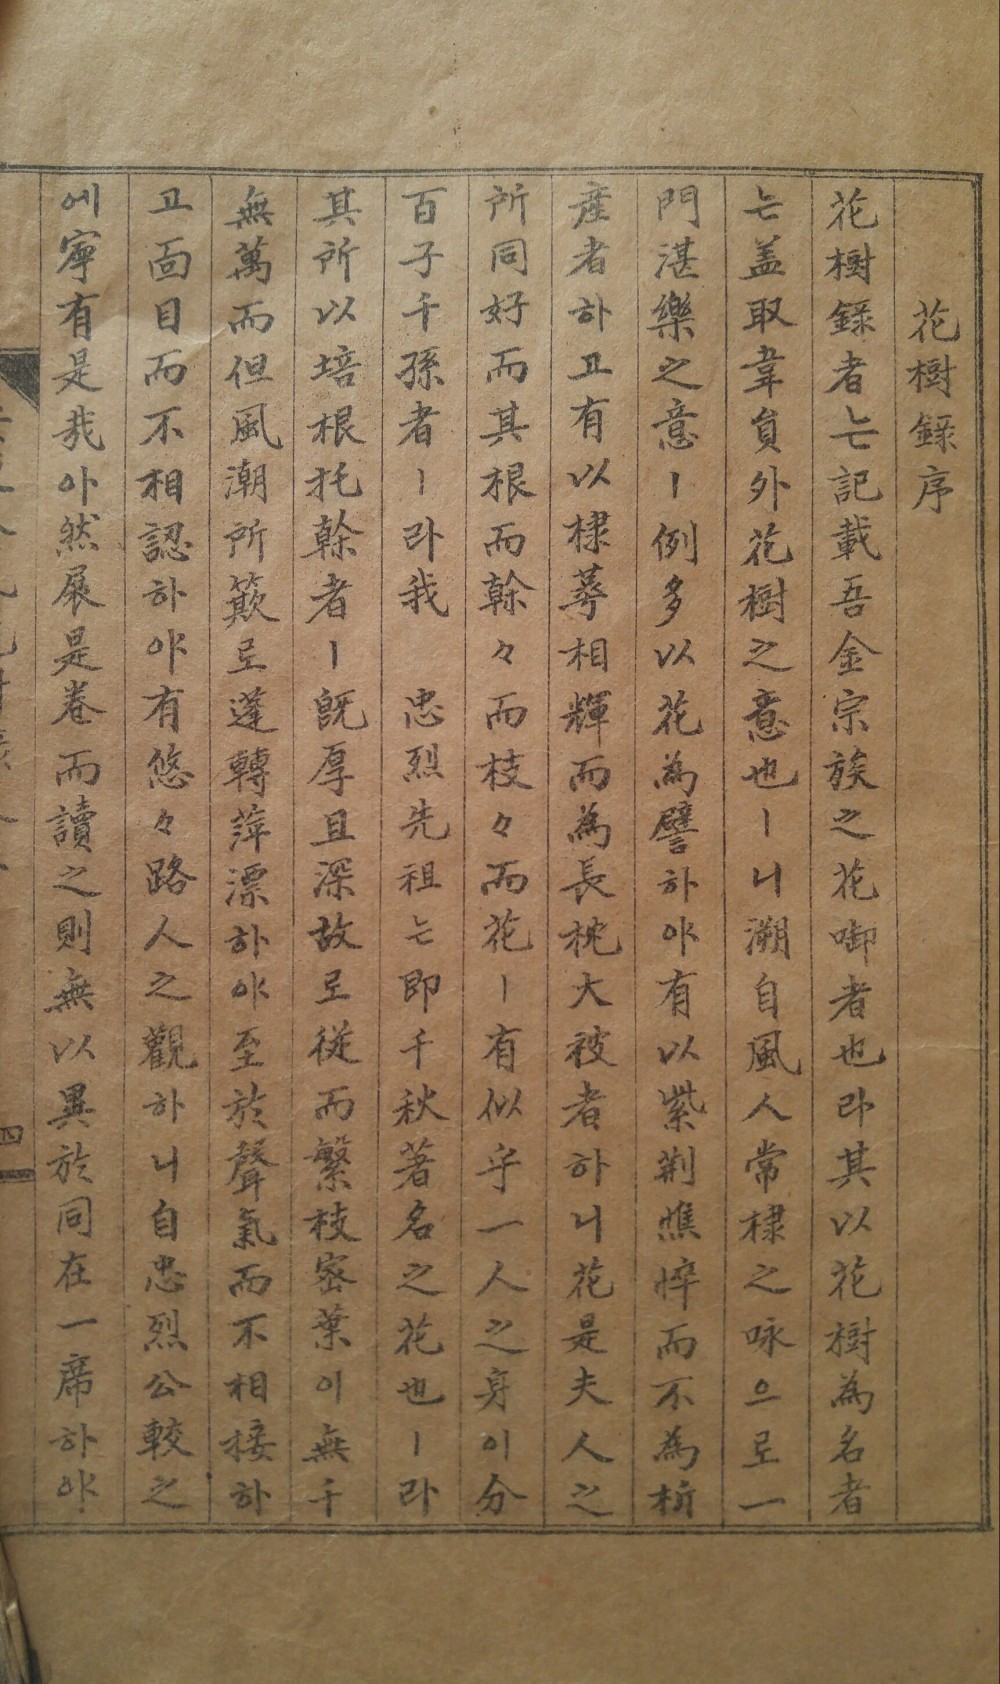 花樹錄序
花樹錄者는記載吾金宗族之花啣者也라其以花樹為名者
는盖取韋員外花樹之意也ㅣ니溯自風人常棣之咏으로一
門湛樂之意ㅣ例多以花為譬하야有以紫荆憔悴而不為析
產者하고有以棣萼相輝而為長枕大被者하니花是夫人之
所同好而其根而幹々而枝々而花ㅣ有似乎一人之身이分
百子千孫者ㅣ라我 忠烈先祖는即千秋著名之花也ㅣ라
其所以培根托幹者ㅣ旣厚且深故로從而繁枝密葉이無千
無萬而但風潮所簸로蓬轉萍漂하야至於聲氣而不相接하
고面目而不相認하야有悠々路人之觀하니自忠烈公較之
에寧有是哉아然展是卷而讀之則無以異於同在一席하야
四